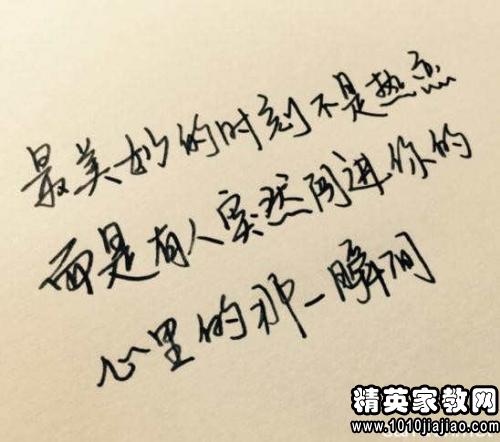 最美妙的时刻不是热恋
而是有人突然闯进你的
心里的那一瞬间
精英家教网
www.1010jiajiao.com